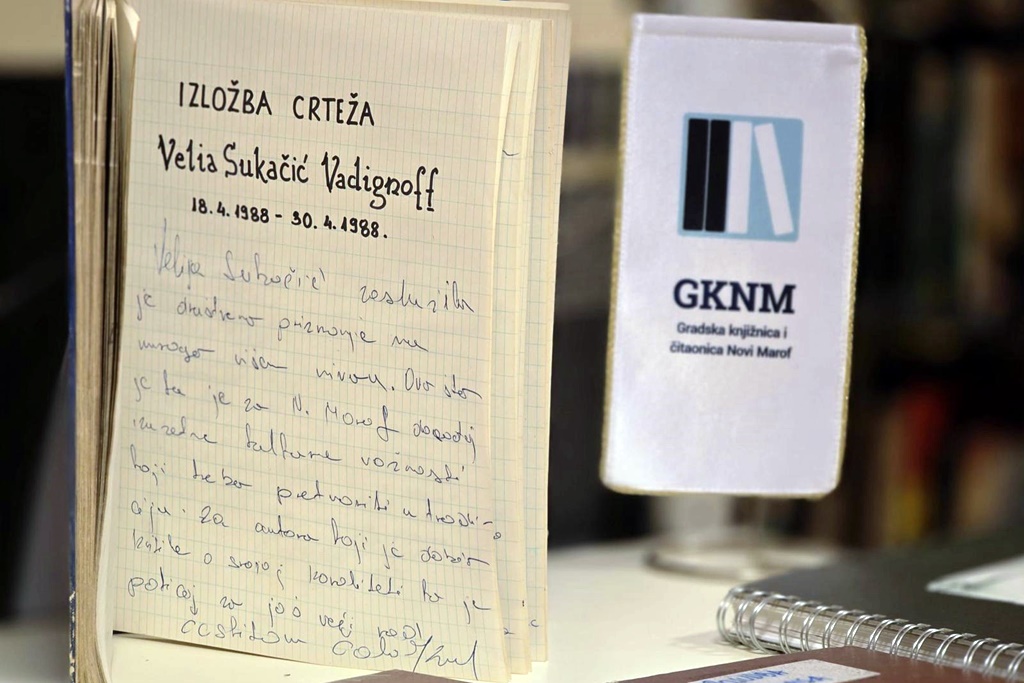 IZLOŽBA CRTEŽA
Velia Sukačić Vadignoff
18.4.1988 - 30.4.1988.
Velija Sukačić zaslužila
je društveno priznanje na
mnogo višem nivou. Ovo što
je tu je za N. Marof događaj
izuzetne kulturne važnosti
koji treba pretvoriti u tradi-
ciju. Za autora koji je dobar
kritike o svojoj kvaliteti to je
poticaj za još veći rad!
GKNM
Gradska knjižnica i
čitaonica Novi Marof